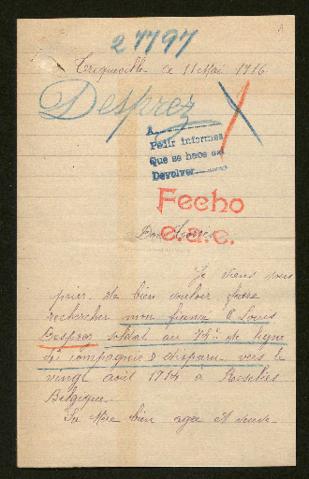 27797
A
ce 11 Mai 1916
Desprez
A
Pedir informes
Que se hace eso
Devolver
Fecho
c.a.c.
Je viens vous
prier de bien vouloir faire
rechercher mon fiancé Louis
Desprez soldat au 74e de ligne
compagnie disparu vers le
vingt août 1914 à Roselies
Belgique.
Sa Mère bien agée et veuve